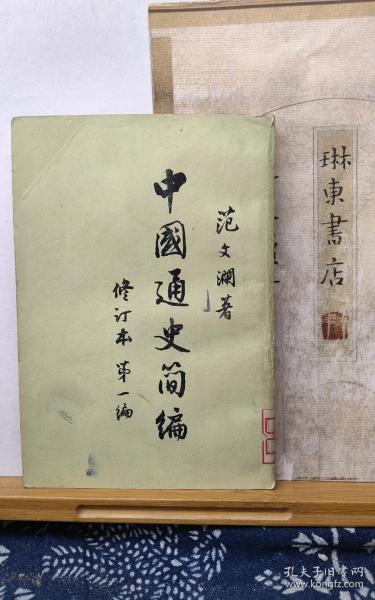 范文澜著
中國通史简编
修订本 第一编
琳東書店
孔夫子旧书网
www.kongfz.com